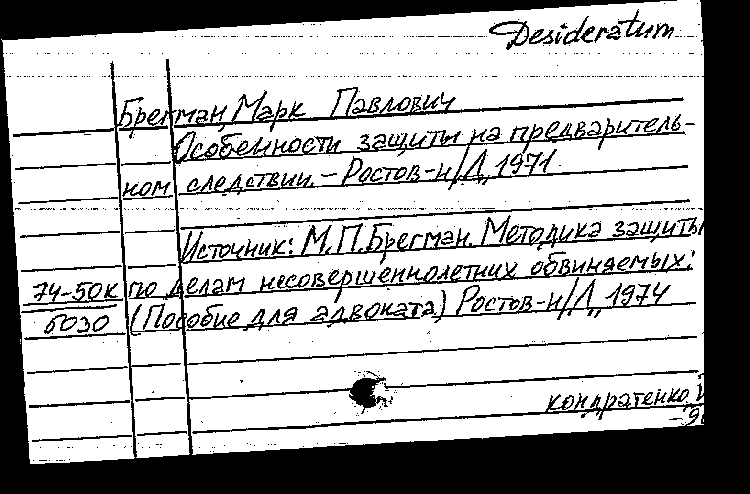 Desideratum
Брегман, Марк Павлович
Особенности защиты на предваритель-
ном следствии. – Ростов-н/Д., 1971
Источник: М.П.Брегман. Методика защиты
74-50к по делам несовершеннолетних обвиняемых:
6030 (Пособие для адвоката) Ростов-н/Д., 1974
кондратенко